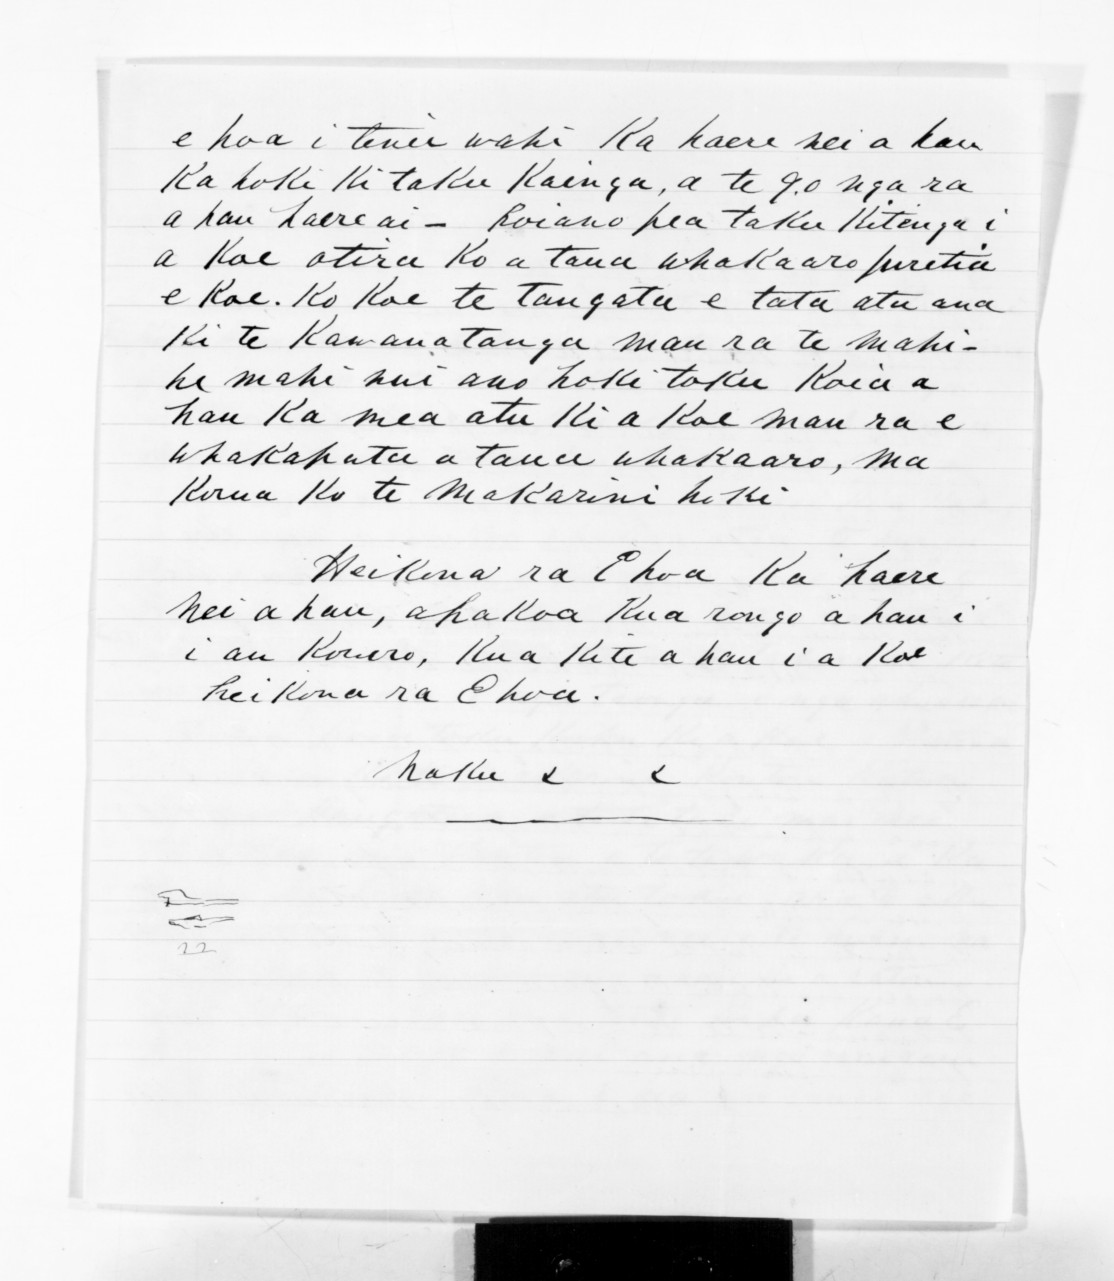 e hoa i tenei wahi Ka haere nei a hau
Ka hoki Ki taku Kainga, a te 9.0 nga ra
a hau haere ai — Hoiano pea taku Kitenga i
a Koe otira Ko a taua whakaaro puretia
e Koe. Ko Koe te tangata e tata atu ana
Ki te Kawanatanga mau ra te mahi -
he mahi nui ano hoki toku Koia a
hau Ka mea atu Ki a Koe mau ra e
whakaputa a taua whakaaro, ma
Korua Ko te Makarini hoki
Heikona ra E hoa Ka haere
nei a hau, apakoa Kua rongo a hau i
i au Korero, Kua Kite a hau i a Koe
heikona ra E hoa.
Naku & &
22